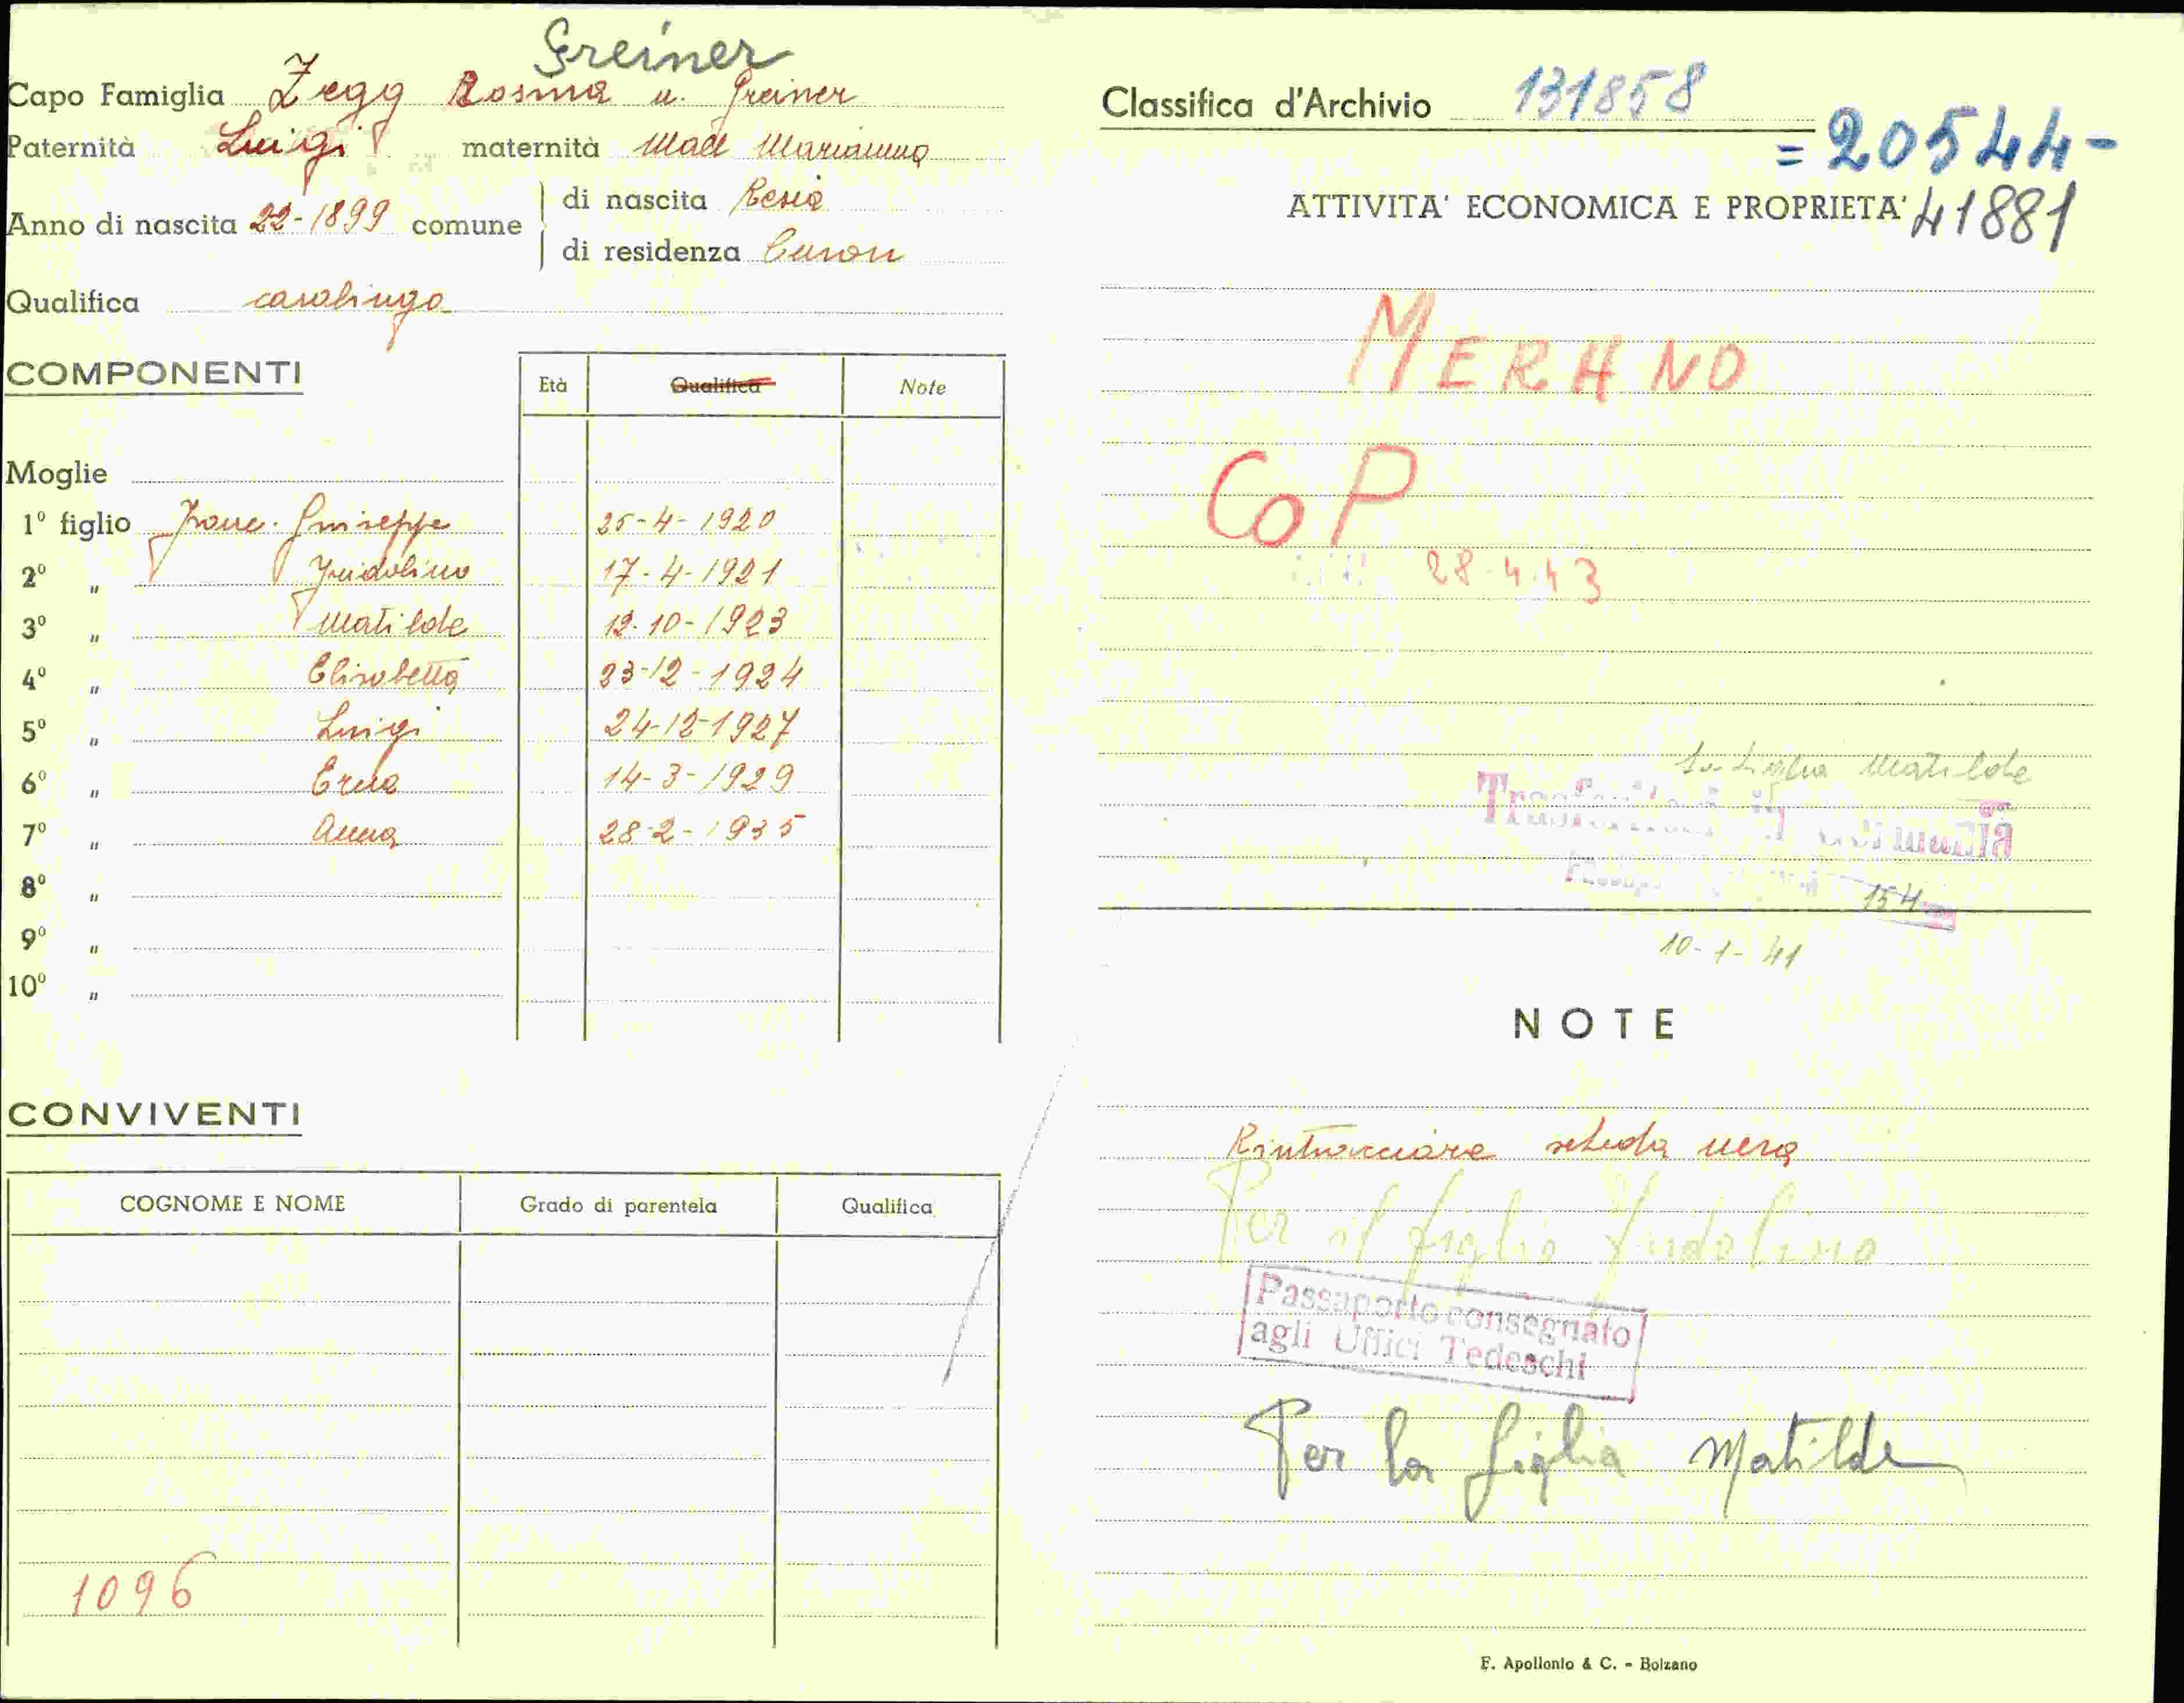 Greiner
Capo Famiglia Zegg Rosina u. Greiner
Paternità Luigi maternità Mall Marianna
Anno di nascita 22-1899 comune
di nascita Resia
di residenza Curon
Qualifica casalinga
COMPONENTI
Età Qualifica Note
Moglie
1º figlio Franc. Giuseppe 25-4-1920
2º " Fridolino 17-4-1921
3º " Matilde 12-10-1923
4º " Elisabetta 23-12-1924
5º " Luigi 24-12-1927
6º " Erna 14-3-1929
7º " Anna 28-2-1935
8º "
9º "
10º "
CONVIVENTI
COGNOME E NOME Grado di parentela Qualifica
1096
Classifica d'Archivio 131858
=20544-
ATTIVITA' ECONOMICA E PROPRIETA' 41881
MERANO
CoP
28.4.43
la figlia Matilde
Trasferitasi in Germania
154
10-1-41
NOTE
Rintracciare scheda vera
Per il figlio Fridolino
Passaporto consegnato
agli Uffici Tedeschi
Per la figlia Matilde
F. Apollonio & C. - Bolzano